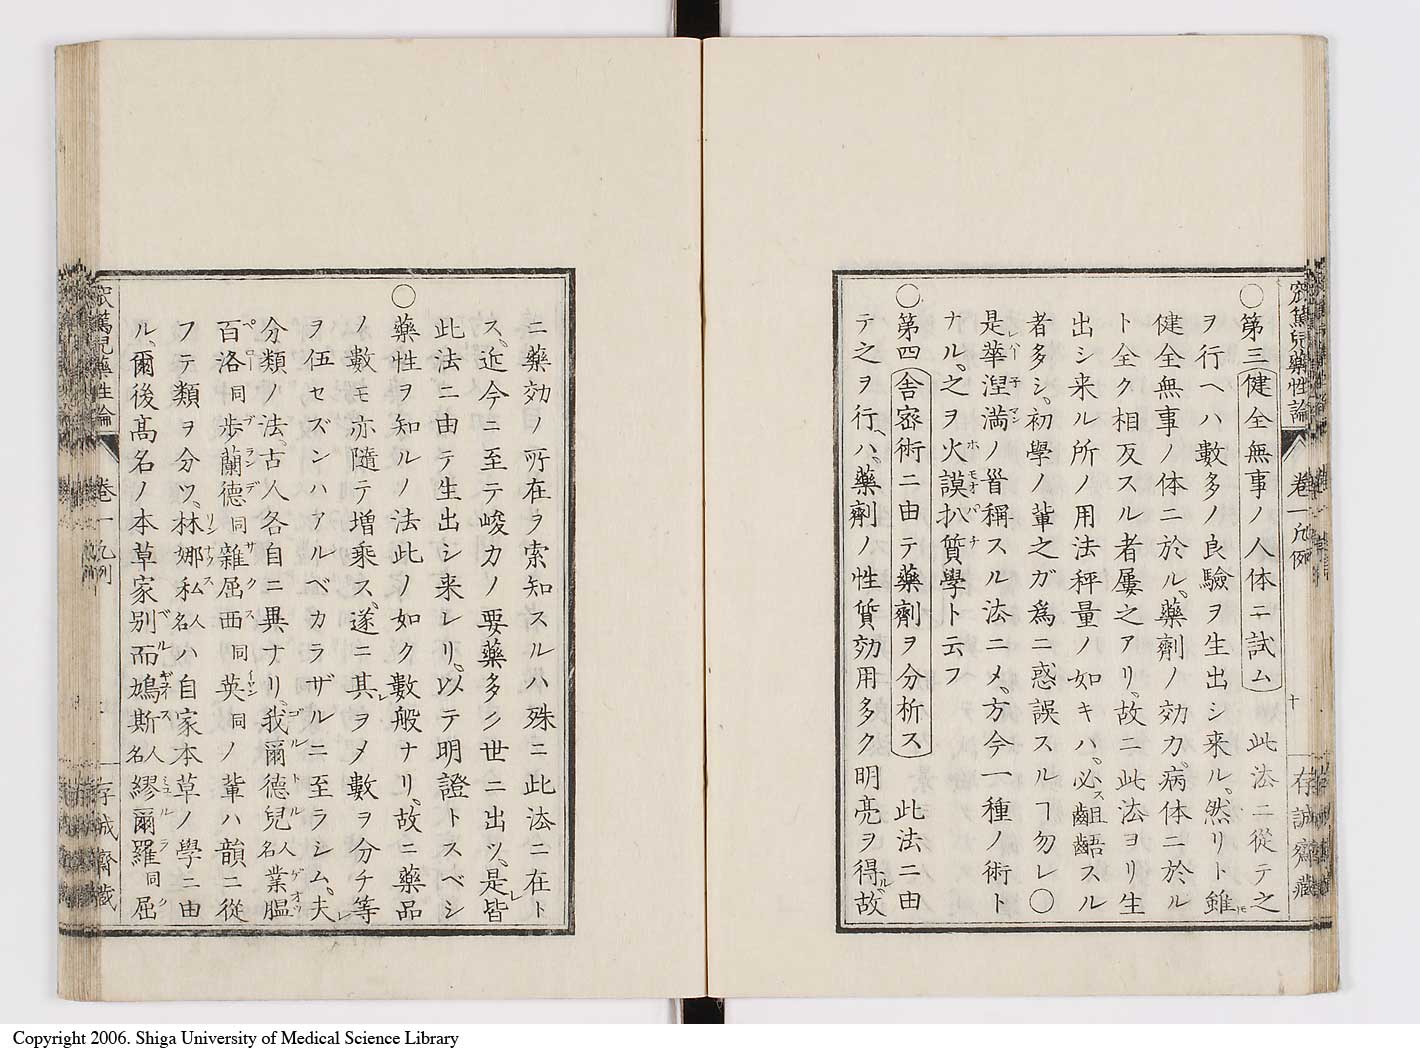 窊篤兒藥性論 卷一凡例 十 存誠齋藏
○第三健全無事ノ人体ニ試ム 此法ニ從テ之
ヲ行ヘハ數多ノ良驗ヲ生出シ来ル、然リト雖𪜈
健全無事ノ体ニ於ル、藥劑ノ効力、病体ニ於ル
ト全ク相反スル者屢之アリ、故ニ此法ヨリ生
出シ来ル所ノ用法秤量ノ如キハ、必ス齟齬スル
者多シ、初學ノ輩之ガ爲ニ惑誤スルヿ勿レ○
是華湼満ノ甞稱スル法ニメ、方今一種ノ術ト
ナル、之ヲ火謨扒質學ト云フ
○第四舎密術ニ由テ藥劑ヲ分析ス 此法ニ由
テ之ヲ行ヘハ、藥劑ノ性質効用多ク明亮ヲ得ル、故
ニ藥効ノ所在ヲ索知スルハ殊ニ此法ニ在ト
ス、近今ニ至テ峻力ノ要藥多ク世ニ出ツ、是レ皆
此法ニ由テ生出シ来レリ、以テ明證トスベシ
○藥性ヲ知ルノ法此ノ如ク數般ナリ、故ニ藥品
ノ數モ亦隨テ増乘ス、遂ニ其レヲメ數ヲ分チ等
ヲ伍セズンハアルベカラザルニ至ラシム、夫レ
分類ノ法、古人各自ニ異ナリ、我爾德兒人名業腽
百洛同歩蘭德同雜屈西同英同ノ輩ハ韻ニ從
フテ類ヲ分ツ、林娜私人名ハ自家本草ノ學ニ由
ル、爾後高名ノ本草家別而鳩斯人名繆爾羅同屈
窊篤兒藥性論 卷一凡例 存誠齋藏
Copyright 2006. Shiga University of Medical Science Library